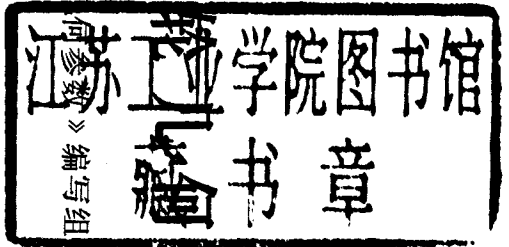 江苏工业学院图书馆
藏书章
何参数》编写组